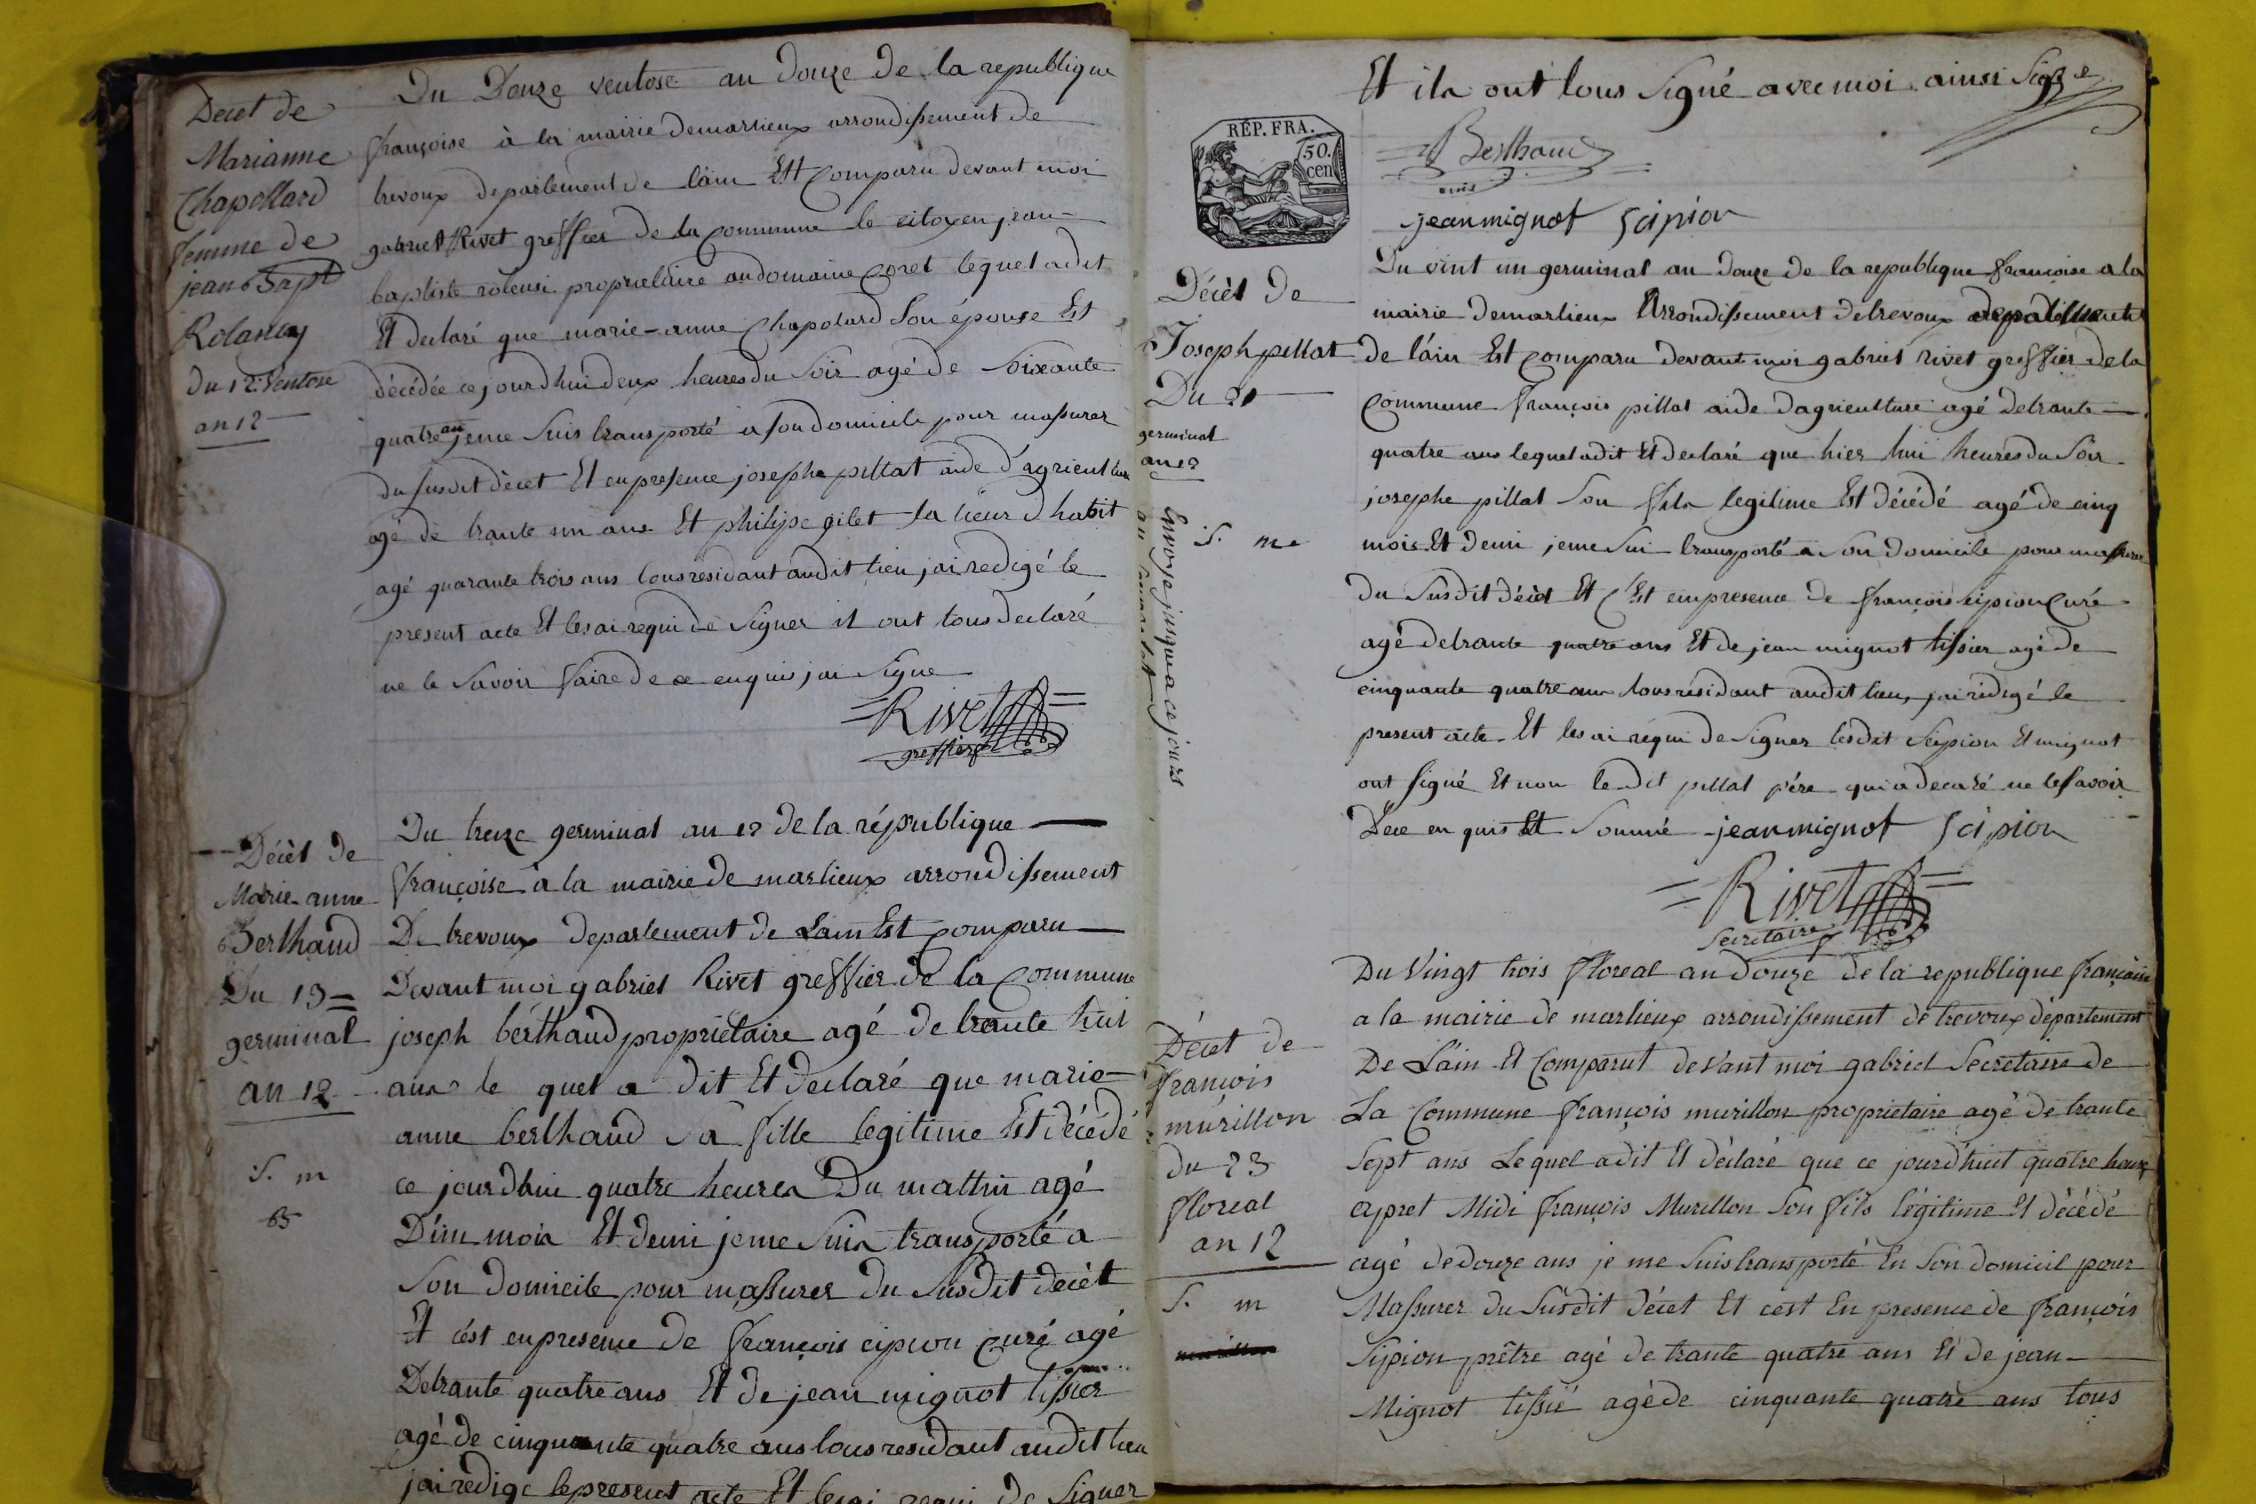 Decet de
Marianne
Chapollard
femme de
jean Bapt
Rolancy
du 12 ventose
an 12
Du Douze ventose an douze de la republique
françoise à la mairie demarlieux arrondissement de
trevoux departement de lain Est Comparu devant moi
gabriel Rivet greffier de la Commune le citoyen jean
baptiste proprietaire audomaine Coret lequel adit
Et declaré que marie-anne Chapolard son épouse Est
décédée ce jourdhui deux heures du soir agé de soixante
quatre an jeme suis transporté a son domicile pour massurer
du susdit dècet Et en presence josephe pillat aide d'agricultur
agé de trante un ans Et philipe gilet la lieur dhabit
agé quarante trois ans tous residant audit lieu jai redigé le
present acte Et les ai requi de signer il ont tous declaré
ne le savoir faire de ce enquis jai signe
Rivet
greffier
Décèt de
Marie-anne
Berthaud
Du 13
germinal
an 12
S. m
Du treize germinal an 12 de la république
françoise à la mairie de marlieux arrondissement
De trevoux departement de Lain Est Comparu
Devant moi gabriel Rivet greffier de la Commune
joseph berthaud propriètaire agé de trante huit
ans le quel a dit Et declaré que marie
anne berthaud sa fille legitime Est décédé
ce jourdhui quatre heures Du mattin agé
D'un mois Et demi jeme suis transporté a
son domicile pour massurer du susdit decèt
Et cést en presence de françois cipion curé agé
Detrante quatre ans Et de jean mignot tissier
agé de cinquante quatre ans tous residant audit lieu
jai redige le present acte Et les ai requi de signer
Et ils ont tous signé avec moi ainsi signe
RÉP. FRA.
50.
cen
Berthaud
jean mignot Scipion
Décèt de
Joseph pillat
Du 21
germinal
an 12
S. m
Envoyé jusqua ce jours
Du vint un germinal an douze de la republique françoise a la
mairie demarlieux Arrondissement detrevoux departement
de láin Est Comparu devant moi gabriel rivet greffier de la
Commune françois pillat aide dagriculture agé detrante
quatre ans lequel adit Et declaré que hier hui heures du soir
josephe pillat son fils legitime Est décédé agé de cinq
mois Et demi jeme sui transporté a son domicile pour massurer
du susdit décèt Et C'Est en presence de françois sipion Curé
agé detrante quatre ans Et de jean mignot tissier agé de
cinquante quatre ans tous résidant audit lieu, jai rédigé le
present acte Et les ai réqui de signer lesdit scipion Et mignot
ont signé Et non le dit pillat pére qui a decaré ne le savoir
Dece en quis Et sommé jean mignot Scipion
Rivet
Secretaire
Décet de
françois
mürillon
du 23
floreal
an 12
S. m
Du Vingt trois floreal an douze de la republique françoise
a la mairie de marlieux arrondissement de trevoux département
De Láin Et Comparut devant moi gabriel Secretaire de
La Commune françois murillon proprietaire agé de trante
sept ans Le quel adit Et déclaré que ce jourd'huit quatre heure
apret Midi françois Murillon son fils légitime Et décédé
agé de douze ans je me suis transporté En son domicil pour
Massurer du Susdit décet Et cést En presence de françois
Sipion prêtre agé de trante quatre ans Et de jean
Mignot tissié agé de cinquante quatre ans tous